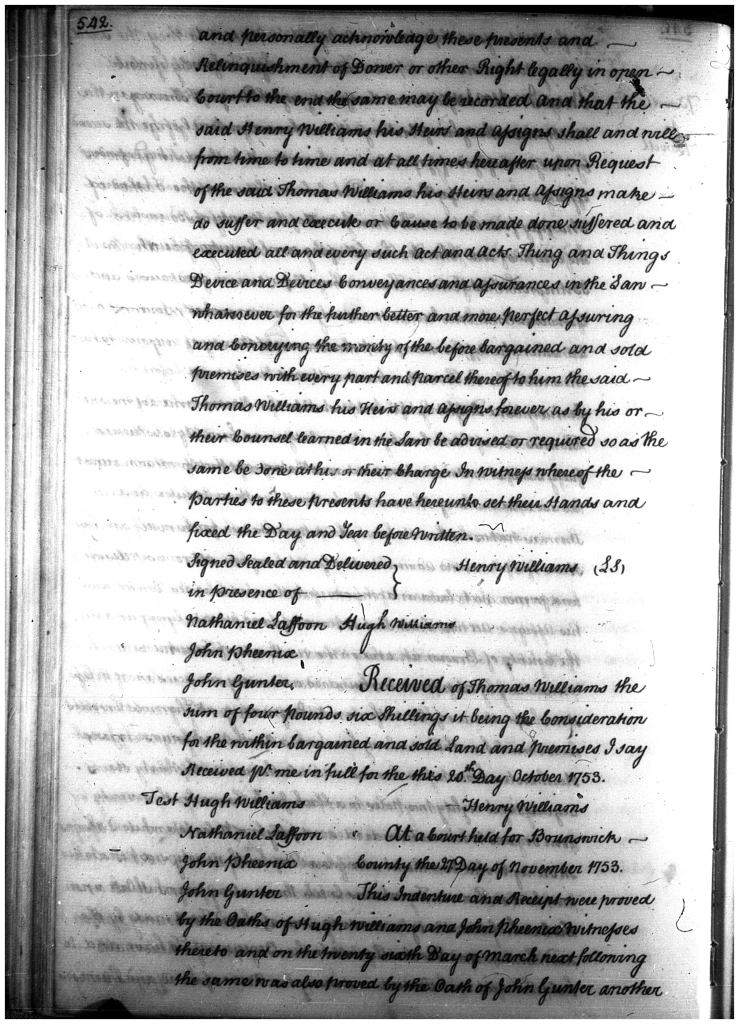 542.
and personally acknowledge these presents and
Relinquishment of Dower or other Right legally in open
Court to the end the same may be recorded and that the
said Henry Williams his Heirs and assigns shall and will
from time to time and at all times hereafter upon Request
of the said Thomas Williams his Heirs and assigns make
do suffer and execute or Cause to be made done suffered and
executed all and every such act and acts Thing and Things
Device and Devices Conveyances and assurances in the Law
whatsoever for the further better and more perfect assuring
and Conveying the moiety of the before bargained and sold
premises with every part and parcel thereof to him the said
Thomas Williams his Heirs and assigns forever as by his or
their Counsel learned in the Law be advised or required so as the
same be done at his or their Charge In Witness whereof the
parties to these presents have hereunto set their Hands and
fixed the Day and Year before Written.
Signed Sealed and Delivered } Henry Williams (LS)
in presence of
Nathaniel Laffoon Hugh Williams
John Pheenix
John Gunter. Received of Thomas Williams the
sum of four pounds six Shillings it being the Consideration
for the within bargained and sold Land and premises I say
Received pr. me in full for the this 20th Day October 1753.
Test Hugh Williams Henry Williams
Nathaniel Laffoon At a Court held for Brunswick
John Pheenix County the 27 Day of November 1753.
John Gunter This Indenture and Receipt were proved
by the Oaths of Hugh Williams and John Pheenix Witnesses
thereto and on the twenty sixth Day of March next following
the same was also proved by the Oath of John Gunter another